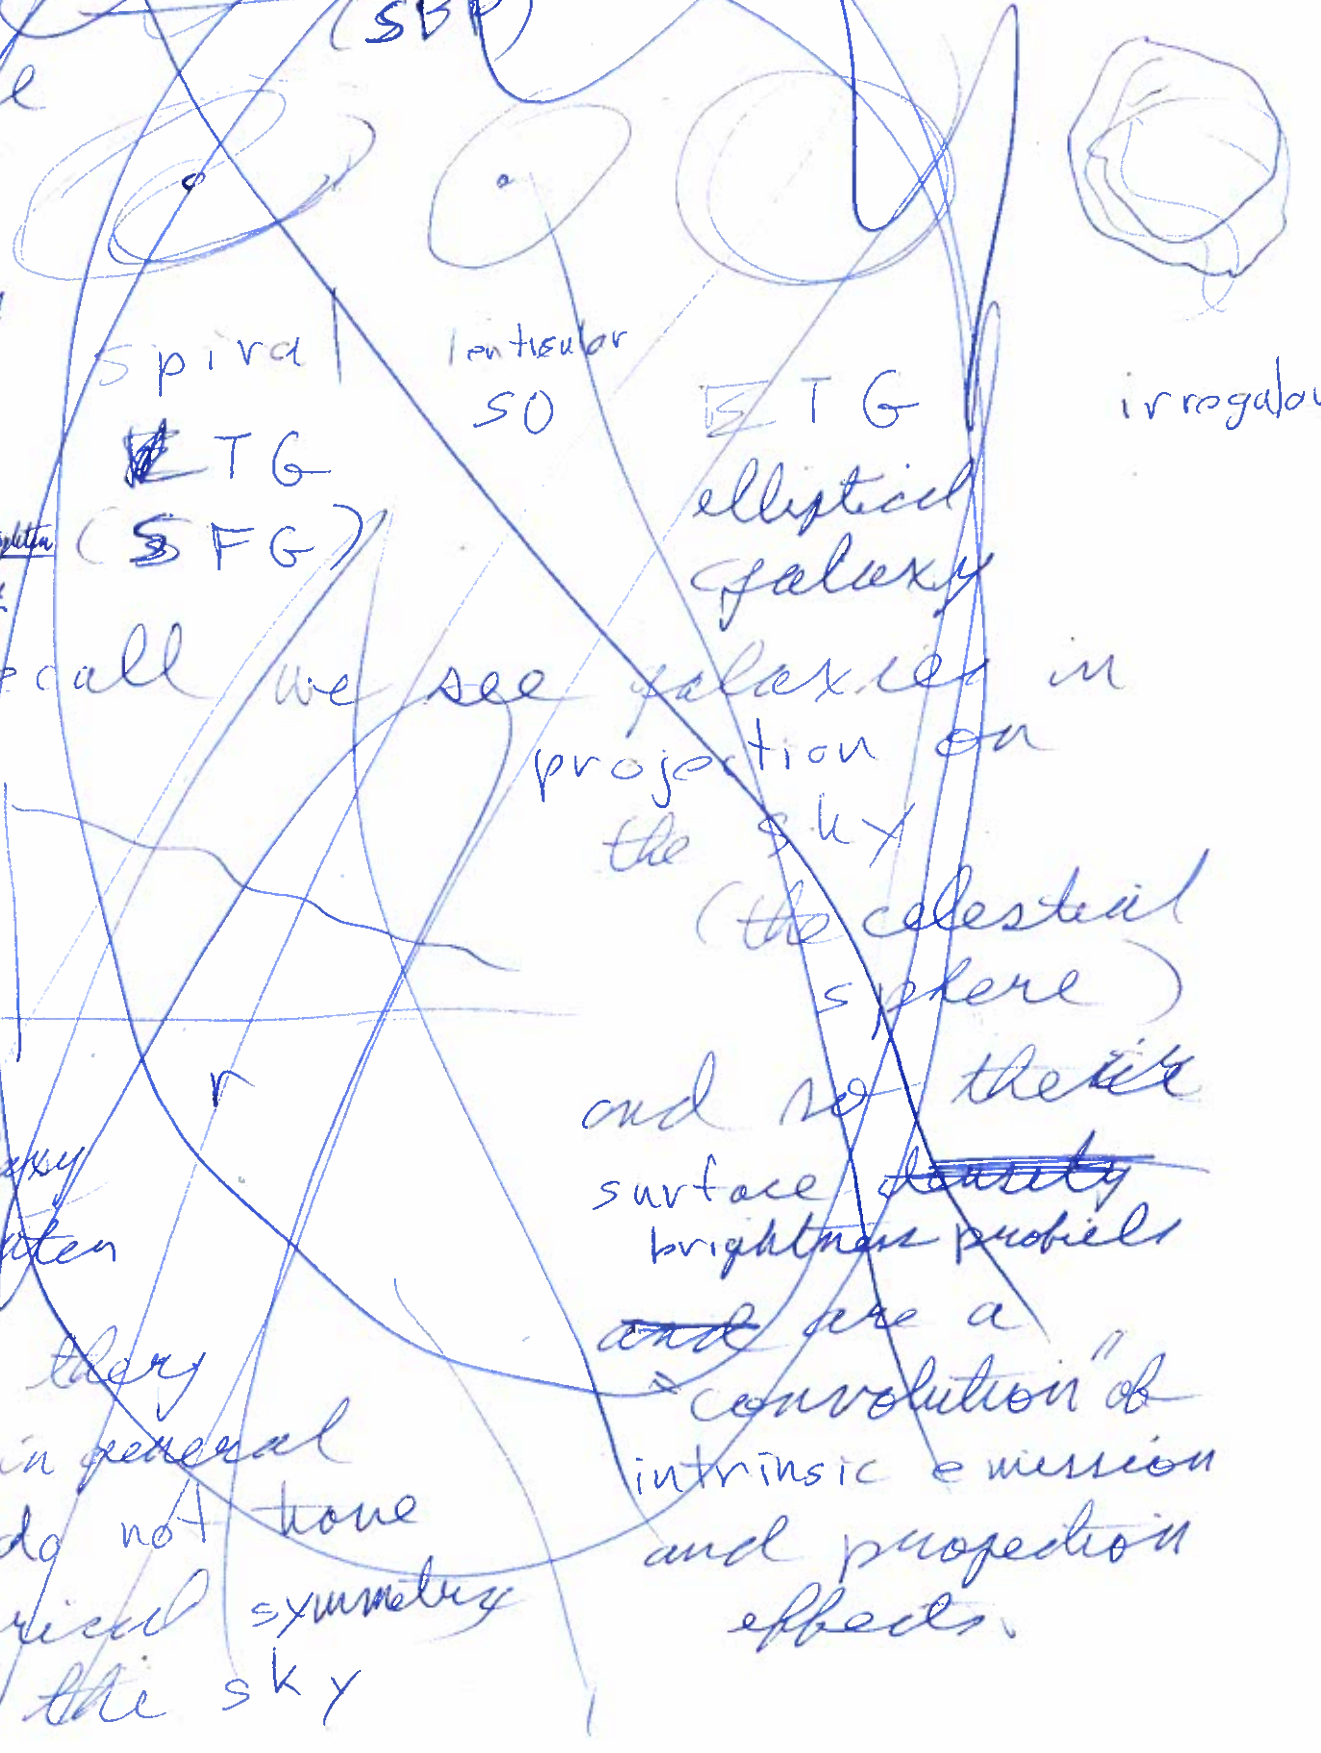 (SBP)
e
spiral
lenticular
S0
ETG
irregular
ETG
(SFG)
elliptical
galaxy
ecall we see galaxies in
projection on
the sky
(the celestial
sphere)
r
and so their
surface density
brightness profiels
and are a
"convolution" of
intrinsic emission
and projection
effects.
axy
aten
they
in general
do not have
rical symmetry
the sky